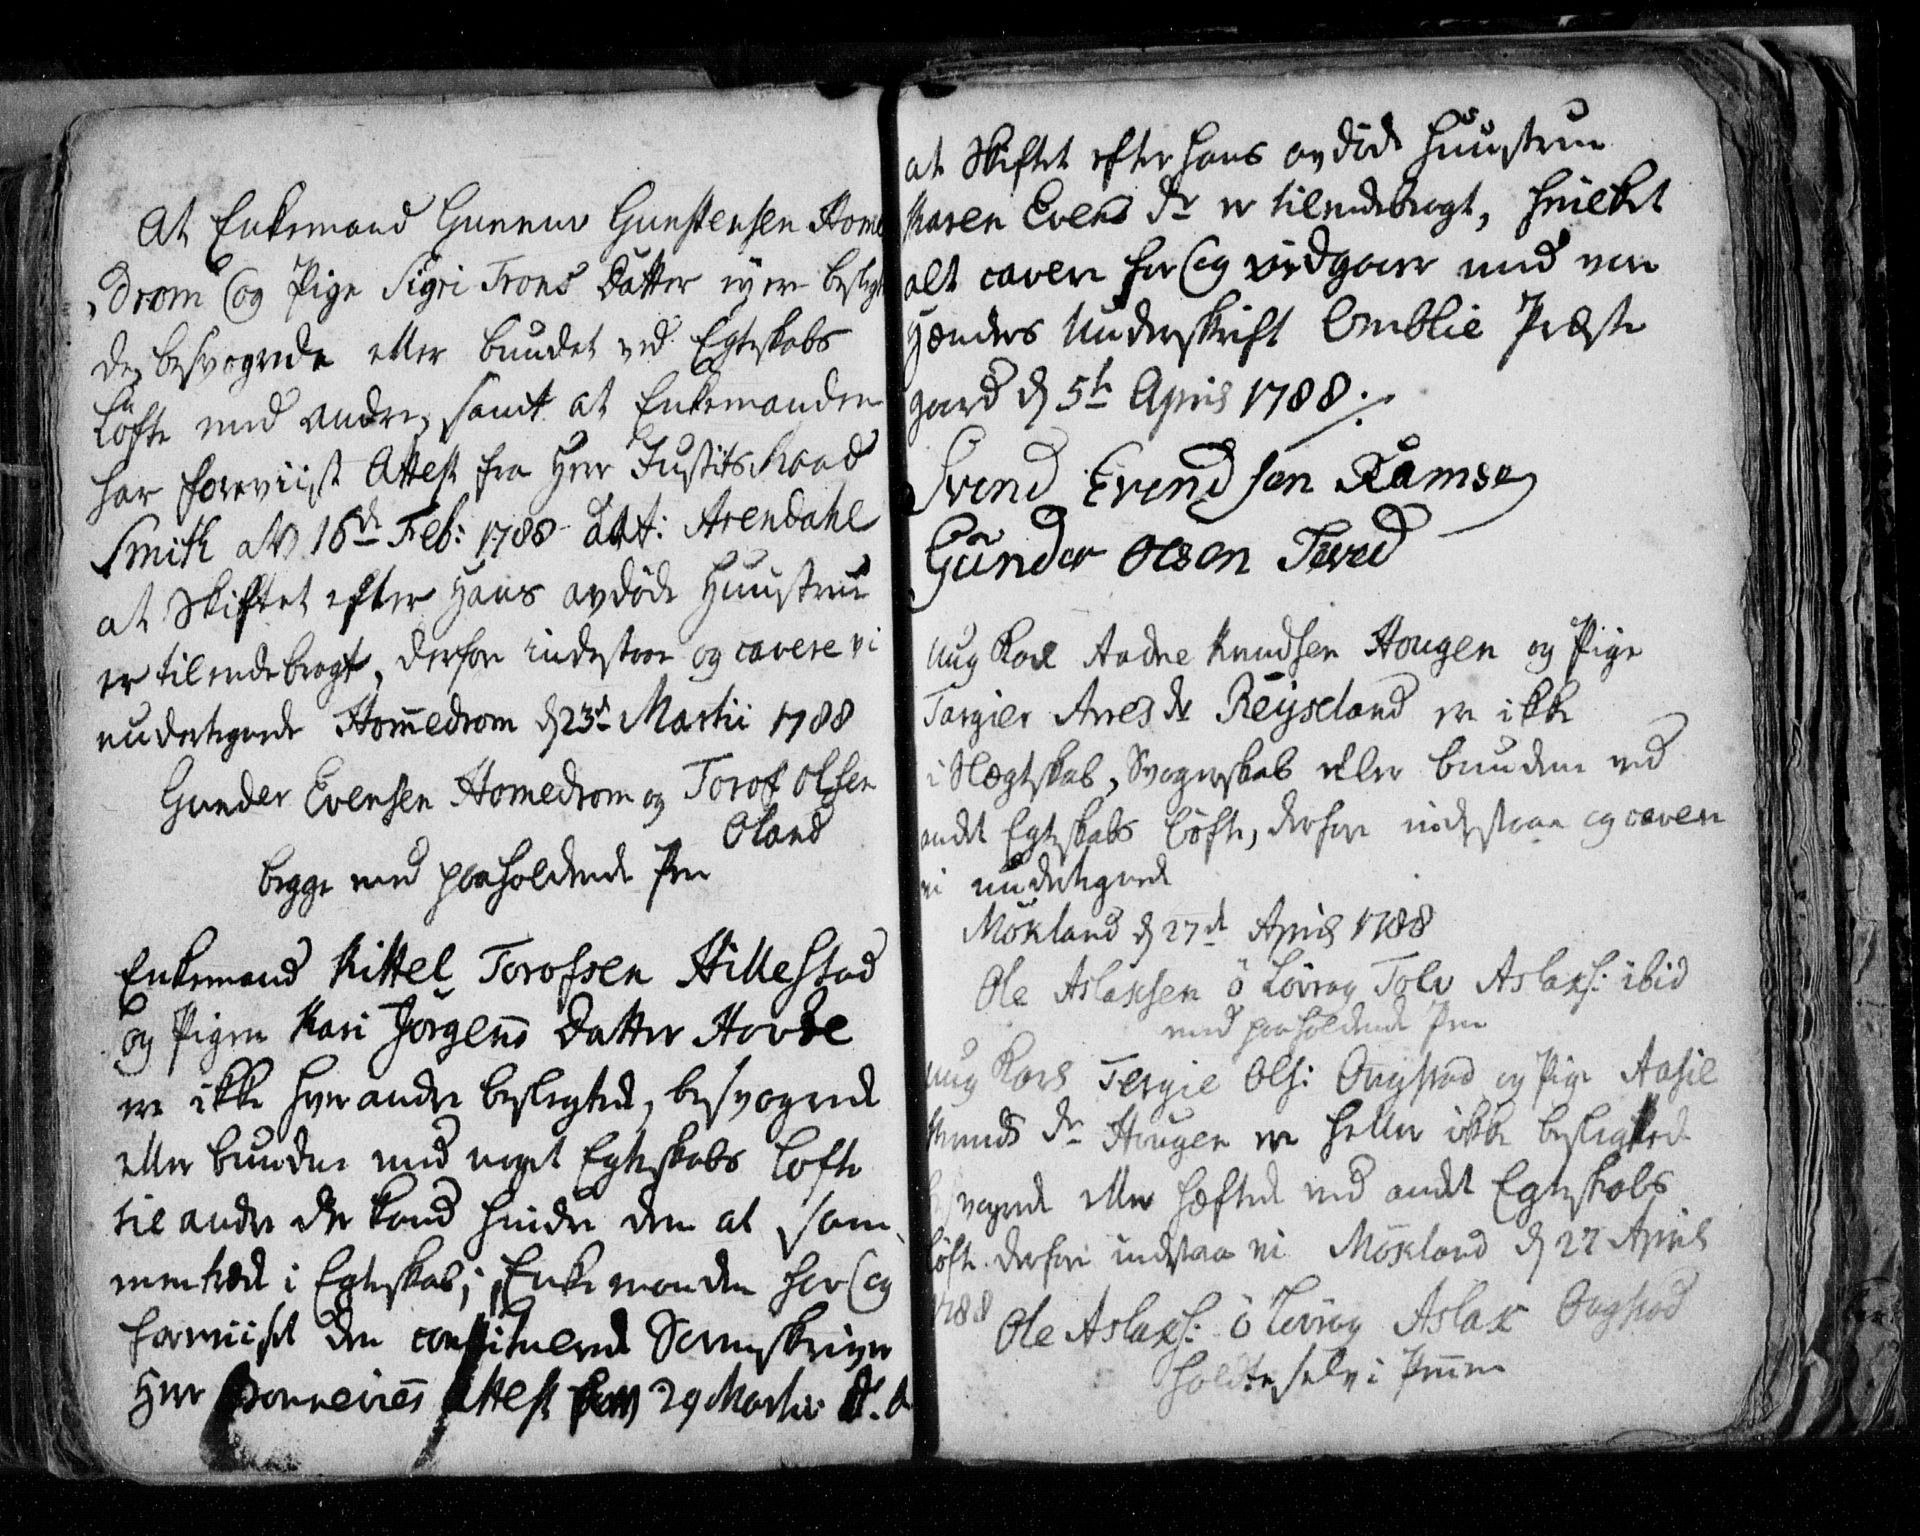 At Enkemand Gunnuv Gunstensen Home
drom og Pige Sigri Trons Datter ey ere beslegte
de, besvogrede eller bundet ved Egteskabs
Løfte med andre, samt at Enkemanden
har foreviist Attest fra Herr Justits Raad
Smith af 16de Feb: 1788 dat: Arendahl
at Skiftet efter Hans avdøde Huustrue
er tilendebragt, derfor indestaae og cavere vi
undertegnede Hommedrom d 23de Martii 1788
Gunder Evensen Homedrom og Torof Olsen
Oland
begge med paaholdende Pen
Enkemand Kittel Torofsen Hillestad
og Pigen Kari Jørgens Datter Hovde
ere ikke hverandre beslegtede, besvogrede
eller bundne med noget Egteskabs Løfte
til andre der kand hindre dem at sam
mentræde i Egteskab; Enkemanden har og
foreviist den constituerede Sorenskriver
Herr Attest 29 Martii d. A
at Skiftet efter hans avdøde Huustrue
Karen Evens Dr er tilendebragt, hvilket
alt cavere for og vedgaar med vore
Hænders Underskrift Omblie Præste
gaard d 5te April 1788 ./.
Svend Evendsen Ramse
Gunder Olsen Teved
Ung Karl Aadne Knudsen Hougen og Pige
Targier Arres Dr Reyseland ere ikke
i Slægtskab, Svogerskab eller bundne ved
andet Egteskabs Løfte, derfor indestaae og cavere
vi undertegnede
Mökland d 27de April 1788
Ole Aslaksen ö Lövrag Tolv Aslaks: ibid
med paaholdende Pen
Ung Karl Tergie Ols: Ougstad og Pige Aasil
Knuds Dr Hougen ere heller ikke beslegtede
besvogrede eller hæftede ved andet Egteskabs
Løfte. derfor indstaa vi Mökland d 27 April
1788
Ole Aslaks: ö Lövrag Aslak Ougstad
holdte selv i Pennen